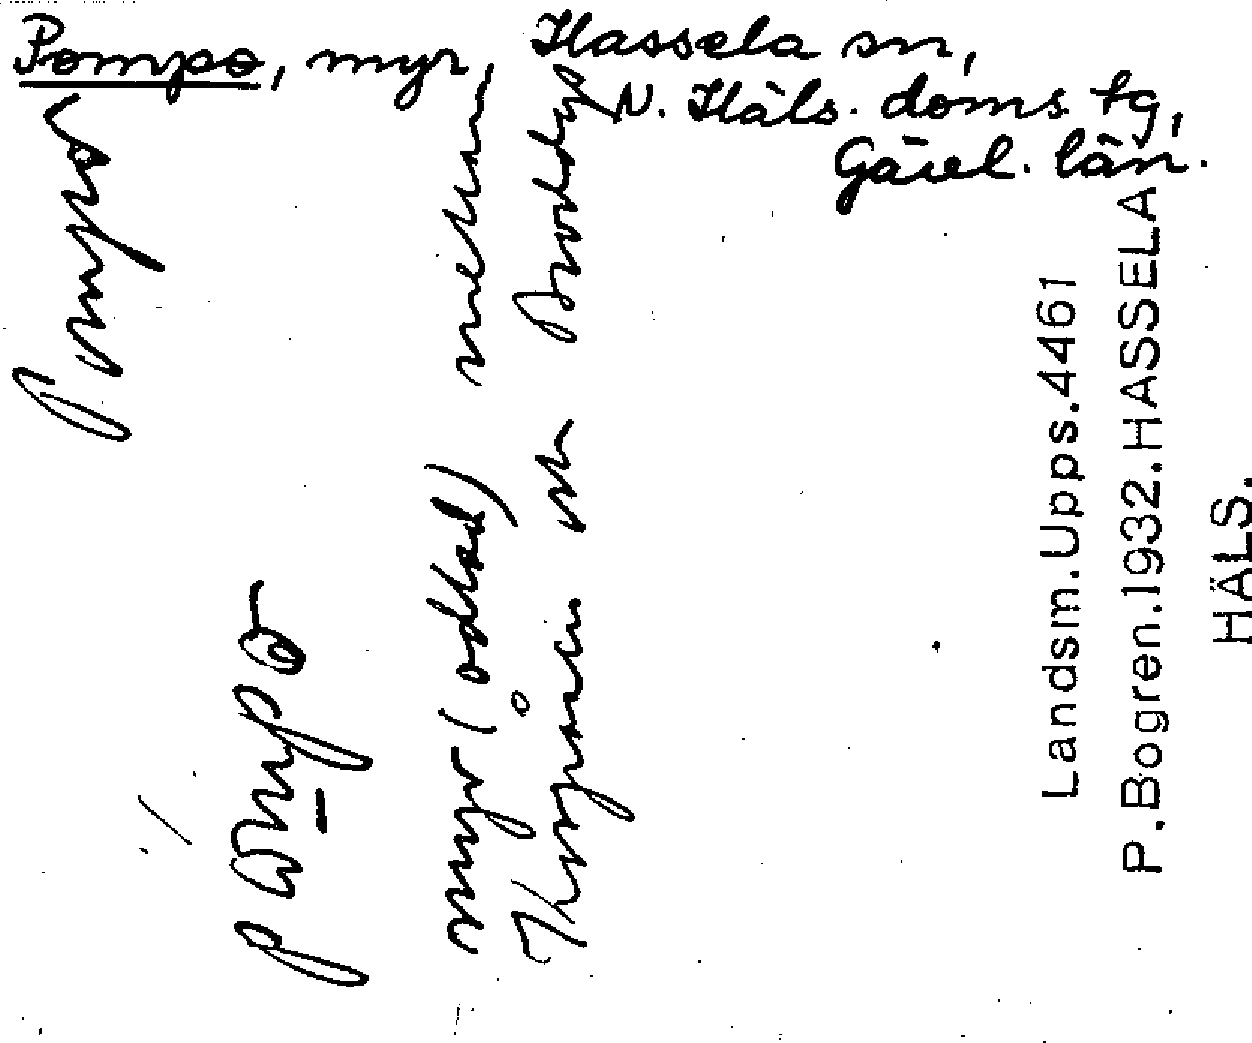 Pompo, myr, Hassela sn,
N. Häls. doms. tg,
Gävel. län.
Pompo
myr (odlad) mellan
och
Landsm. Upps. 4461
P. Bogren. 1932. HASSELA
HÄLS.